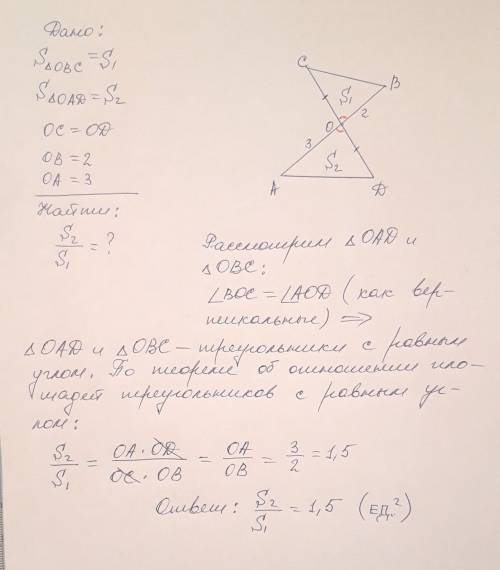 Дано:
S△OBC = S₁
S△OAD = S₂
OC = OD
OB = 2
OA = 3
Найти:
S₂/S₁ = ?
C
B
S₁
2
O
3
S₂
A
D
Рассмотрим △OAD и
△OBC:
∠BOC = ∠AOD (как вер-
тикальные) ⇒
△OAD и △OBC – треугольники с равным
углом. По теореме об отношении пло-
щадей треугольников с равным уг-
лом:
S₂/S₁ = OA · OD / OC · OB = OA/OB = 3/2 = 1,5
Ответ: S₂/S₁ = 1,5 (ед.²)